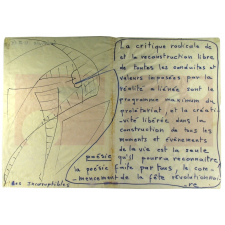 La critique radicale de
et la reconstruction libre
de toutes les conduites et
valeurs imposées par la
réalité aliénée sont le
programme maximum du
prolétariat, et la créati-
vité libérée dans la
construction de tous les
moments et événements
de la vie est la seule
poésie qu'il pourra reconnaître,
la poésie faite par tous, le com-
mencement de la fête révolutionnai-
re
Nos incorruptibles